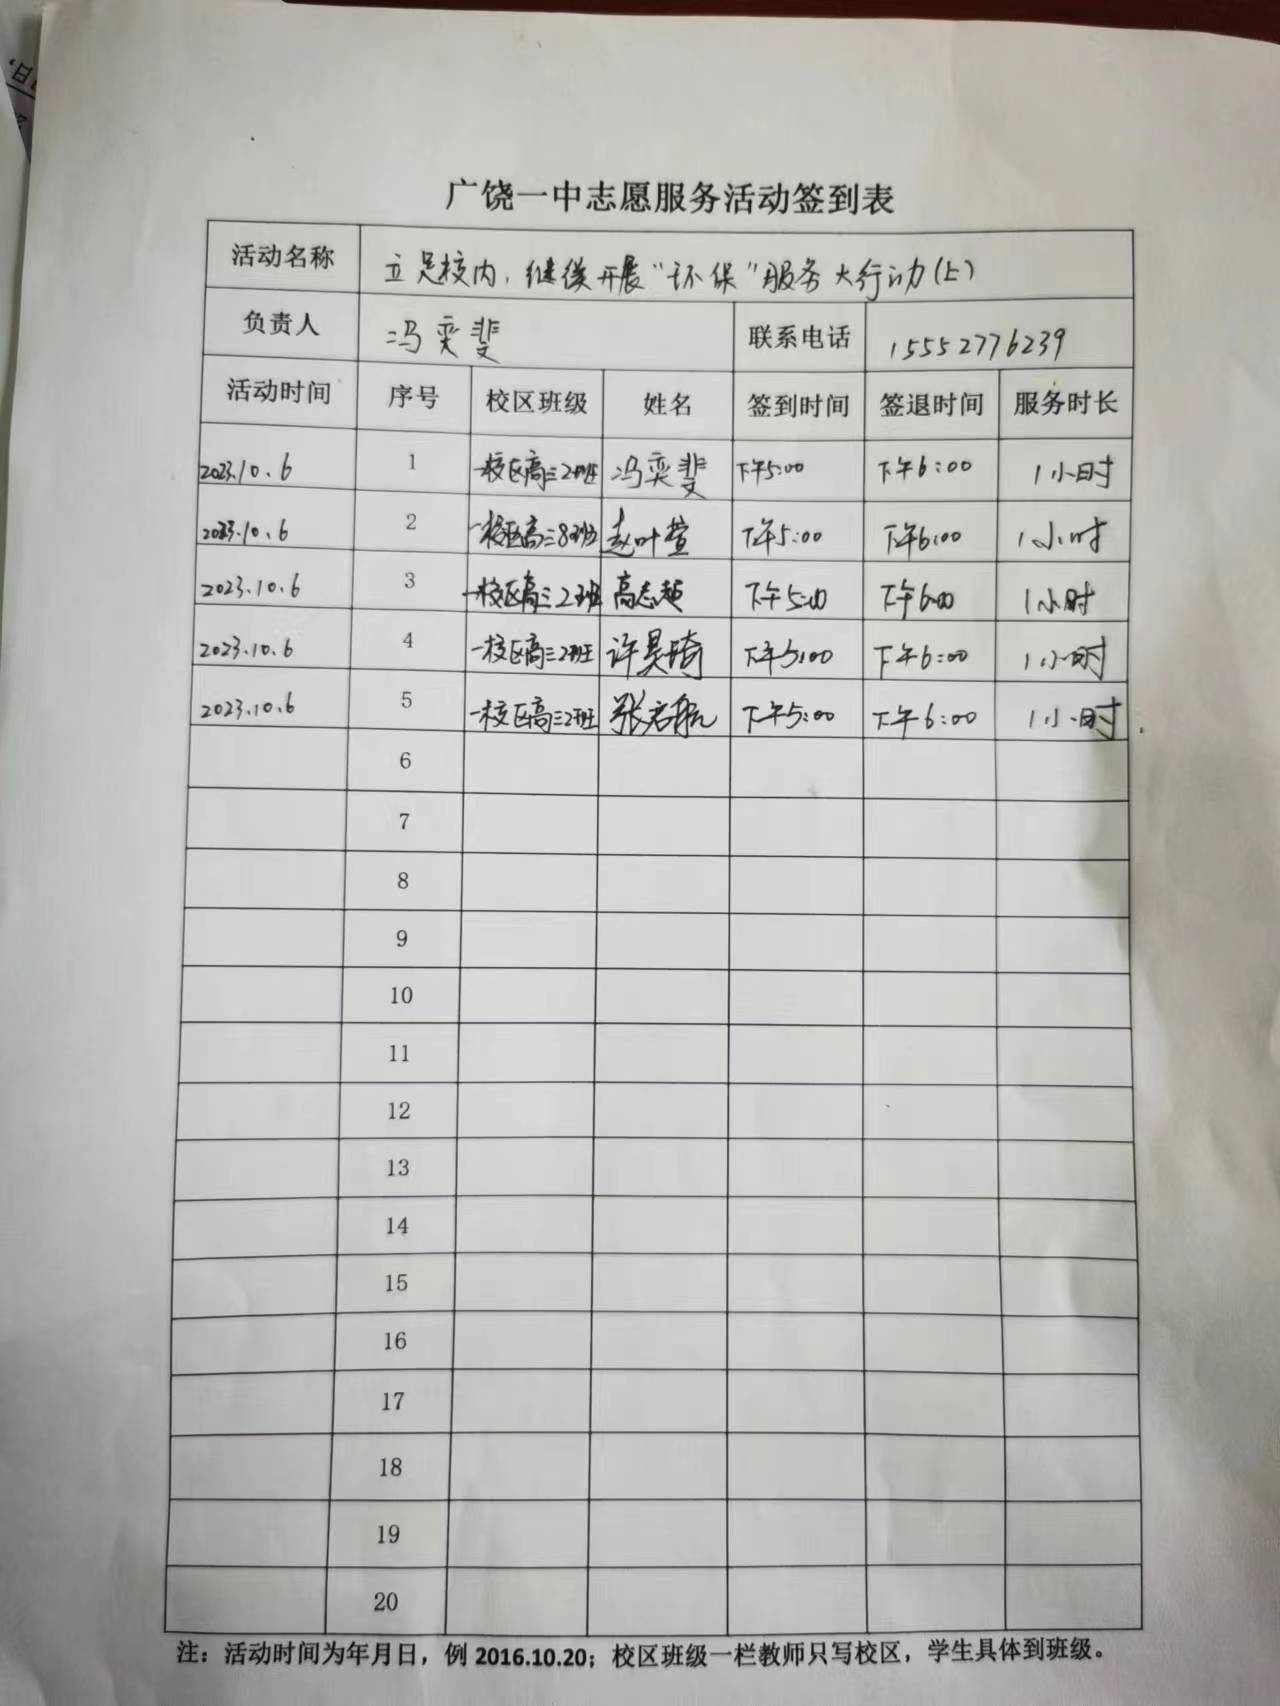 广饶一中志愿服务活动签到表
活动名称 立足校内，继续开展“环保”服务大行动(上)
负责人 冯奕斐 联系电话 15552776239
活动时间 序号 校区班级 姓名 签到时间 签退时间 服务时长
2023.10.6 1 一校区高三2班 冯奕斐 下午5:00 下午6:00 1小时
2023.10.6 2 一校区高三8班 赵叶萱 下午5:00 下午6:00 1小时
2023.10.6 3 一校区高三2班 高志越 下午5:00 下午6:00 1小时
2023.10.6 4 一校区高三2班 许昊琦 下午5:00 下午6:00 1小时
2023.10.6 5 一校区高三2班 张君航 下午5:00 下午6:00 1小时
6
7
8
9
10
11
12
13
14
15
16
17
18
19
20
注：活动时间为年月日，例 2016.10.20；校区班级一栏教师只写校区，学生具体到班级。